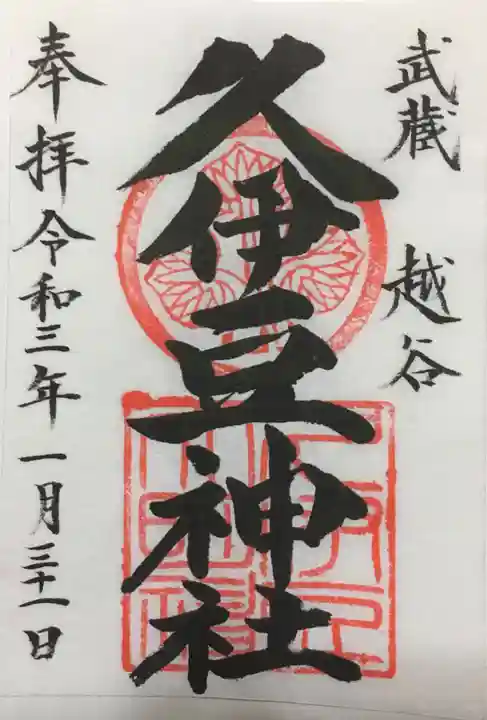 武蔵 越谷
久伊豆神社
奉拝 令和三年一月三十一日